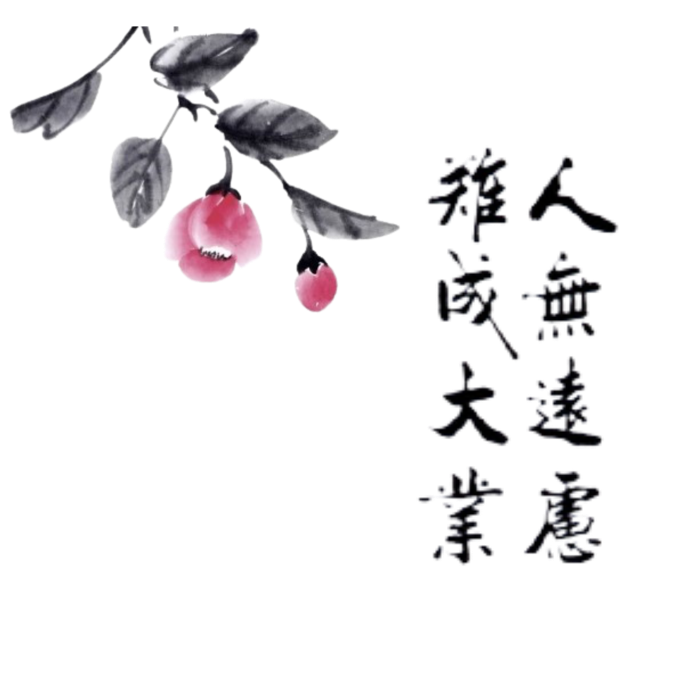 人無遠慮
難成大業